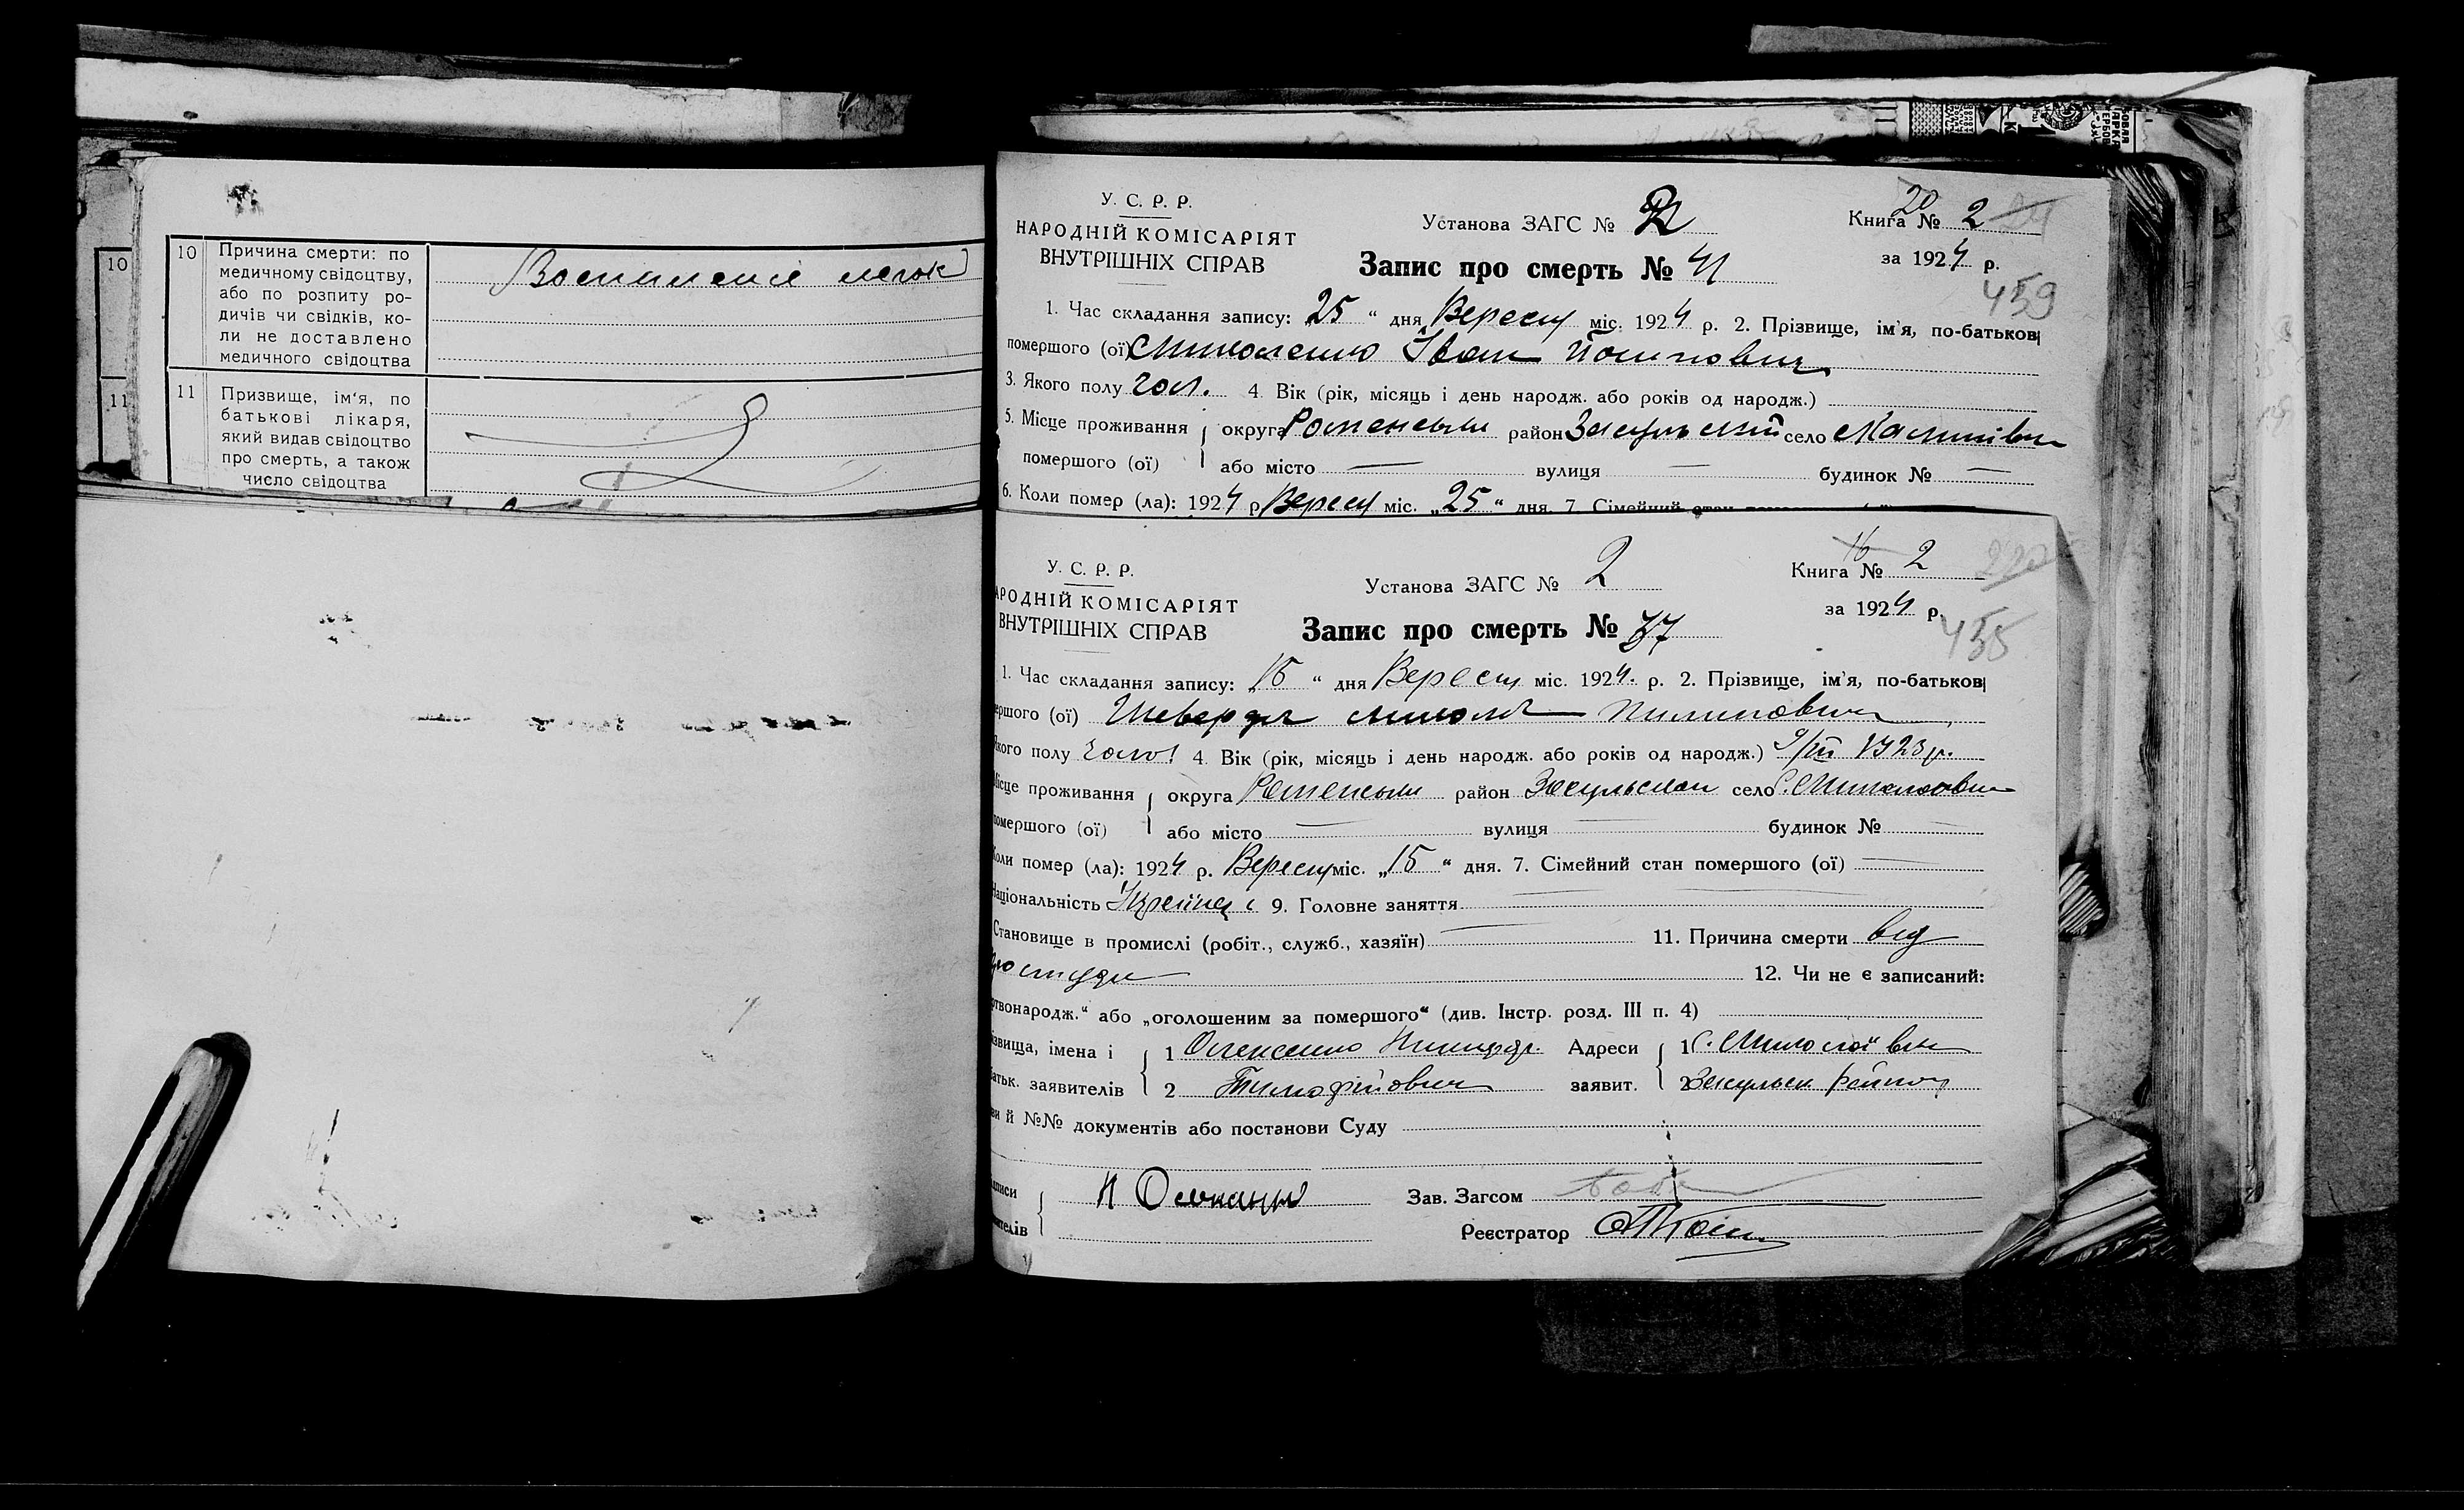 10
11
10 Причина смерти: по
медичному свідоцтву,
або по розпиту ро-
дичів чи свідків, ко-
ли не доставлено
медичного свідоцтва
Воспаление легок
11 Призвище, ім‘я, по
батькові лікаря,
який видав свідоцтво
про смерть, а також
число свідоцтва
У. С. Р. Р.
НАРОДНІЙ КОМІСАРІЯТ
ВНУТРІШНІХ СПРАВ
Установа ЗАГС № 2
Книга № 20 2
Запис про смерть № 41
за 1924 р.
459
1. Час складання запису: 25 “ дня Вересн міс. 1924 р. 2. Прізвище, ім'я, по-батькові
помершого (ої) Іван
3. Якого полу чол. 4. Вік (рік, місяць і день народж. або років од народж.)
5. Місце проживання округа Роменськи район Засульський село
помершого (ої) або місто — вулиця — будинок № —
6. Коли помер (ла): 1924 р Вересн міс. „25“ дня. 7. Сімейний стан
У. С. Р. Р.
АРОДНІЙ КОМІСАРІЯТ
ВНУТРІШНІХ СПРАВ
Установа ЗАГС № 2
Книга № 16 2
Запис про смерть № 37
за 1924 р.
455
1. Час складання запису: 15 “ дня Вересн міс. 1924. р. 2. Прізвище, ім'я, по-батькові
ершого (ої) Шевердя Микола Пилипович
Якого полу чолов 4. Вік (рік, місяць і день народж. або років од народж.) 1923р.
Місце проживання округа Роменськи район Засульськи село
помершого (ої) або місто — вулиця — будинок № —
Коли помер (ла): 1924 р. Вересн міс. „15“ дня. 7. Сімейний стан помершого (ої) —
Національність Україн 9. Головне заняття —
Становище в промислі (робіт., служб., хазяїн) — 11. Причина смерти від
простуди 12. Чи не є записаний:
ртвонародж.“ або „оголошеним за помершого“ (див. Інстр. розд. III п. 4)
звища, імена і 1 Олексенко Адреси 1
атьк. заявителів 2 Тимофійович заявит. 2 Засульськ району
ви й №№ документів або постанови Суду
дписи Зав. Загсом
ителів Реєстратор